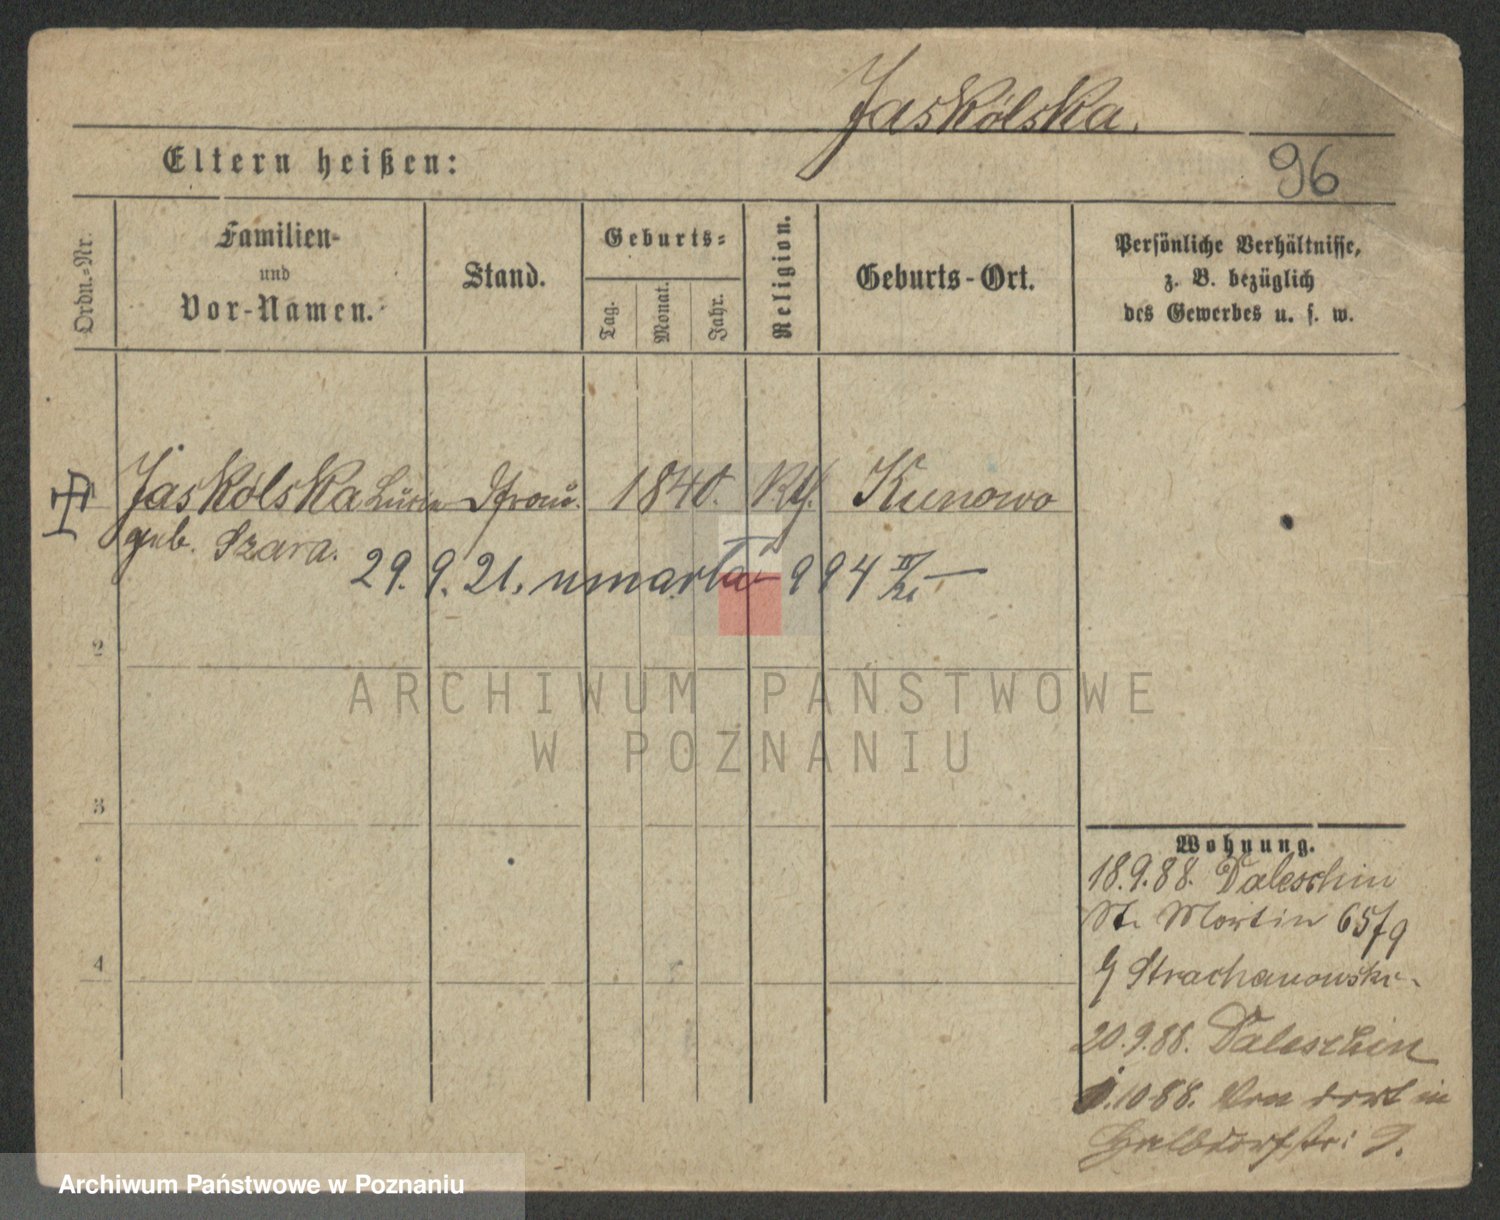 Jaskólska.
Eltern heißen:
96
Ordn.-Nr.
Familien-
und
Vor-Namen.
Stand.
Geburts-
Tag.
Monat.
Jahr.
Religion.
Geburts-Ort.
Persönliche Verhältnisse,
z. B. bezüglich
des Gewerbes u. s. w.
Jaskólska 1840. Kunowo
geb. Szara.
29. 9. 21. umarła 994
2
ARCHIWUM PAŃSTWOWE
W POZNANIU
3
4
Wohnung.
18.9.88. Daleschin
St. Martin 65/9
Strachanowski
20.9.88. Daleschin
.10 88. Von dort in
Halbdorfstr: 9.
Archiwum Państwowe w Poznaniu